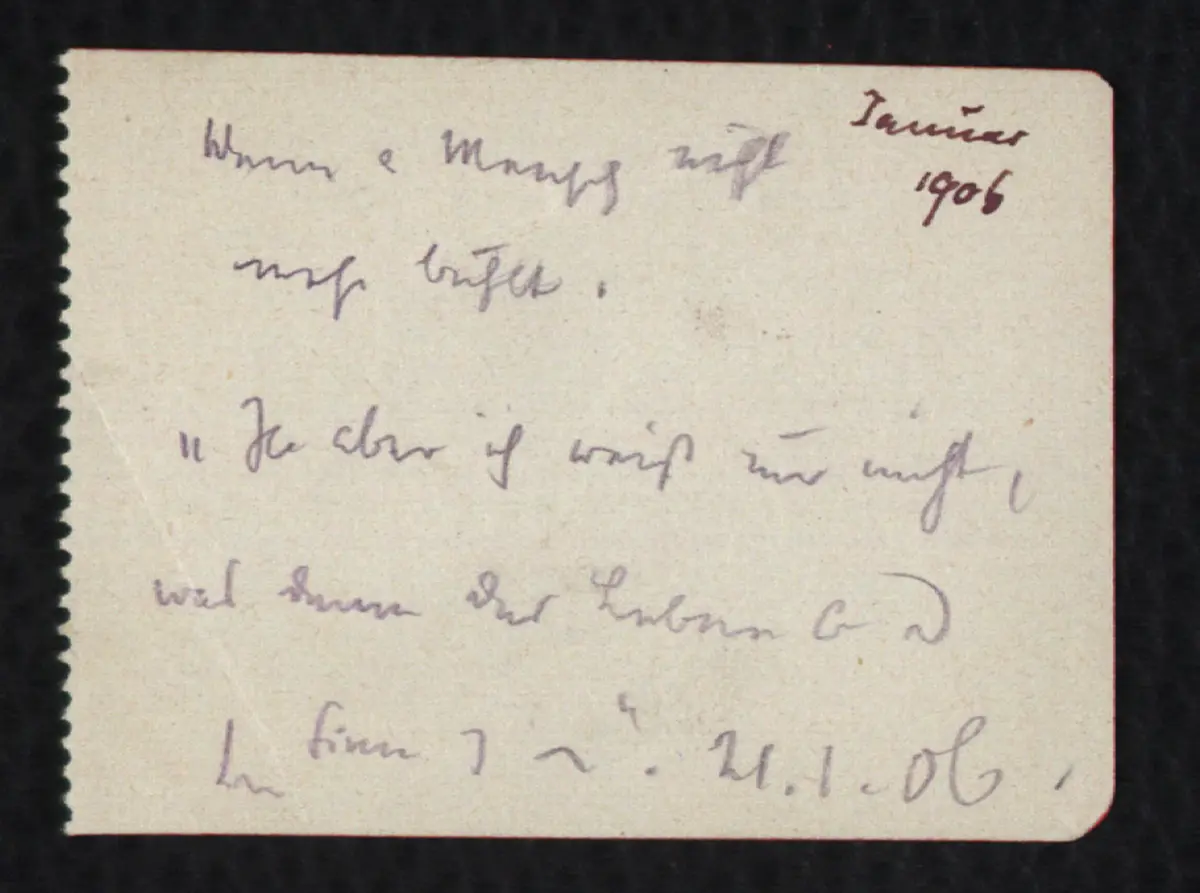 Januar
1906
Wenn e Mensch nicht
mehr buhlt.
„Ja aber ich weiß nur nicht,
was denn das Leben
Sinn “. 21.1.06.